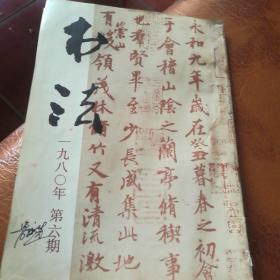 书法
一九八〇年 第六期
永和九年歲在癸丑暮春之初會
于會稽山陰之蘭亭脩稧事
也羣賢畢至少長咸集此地
有崇山峻領茂林脩竹又有清流激